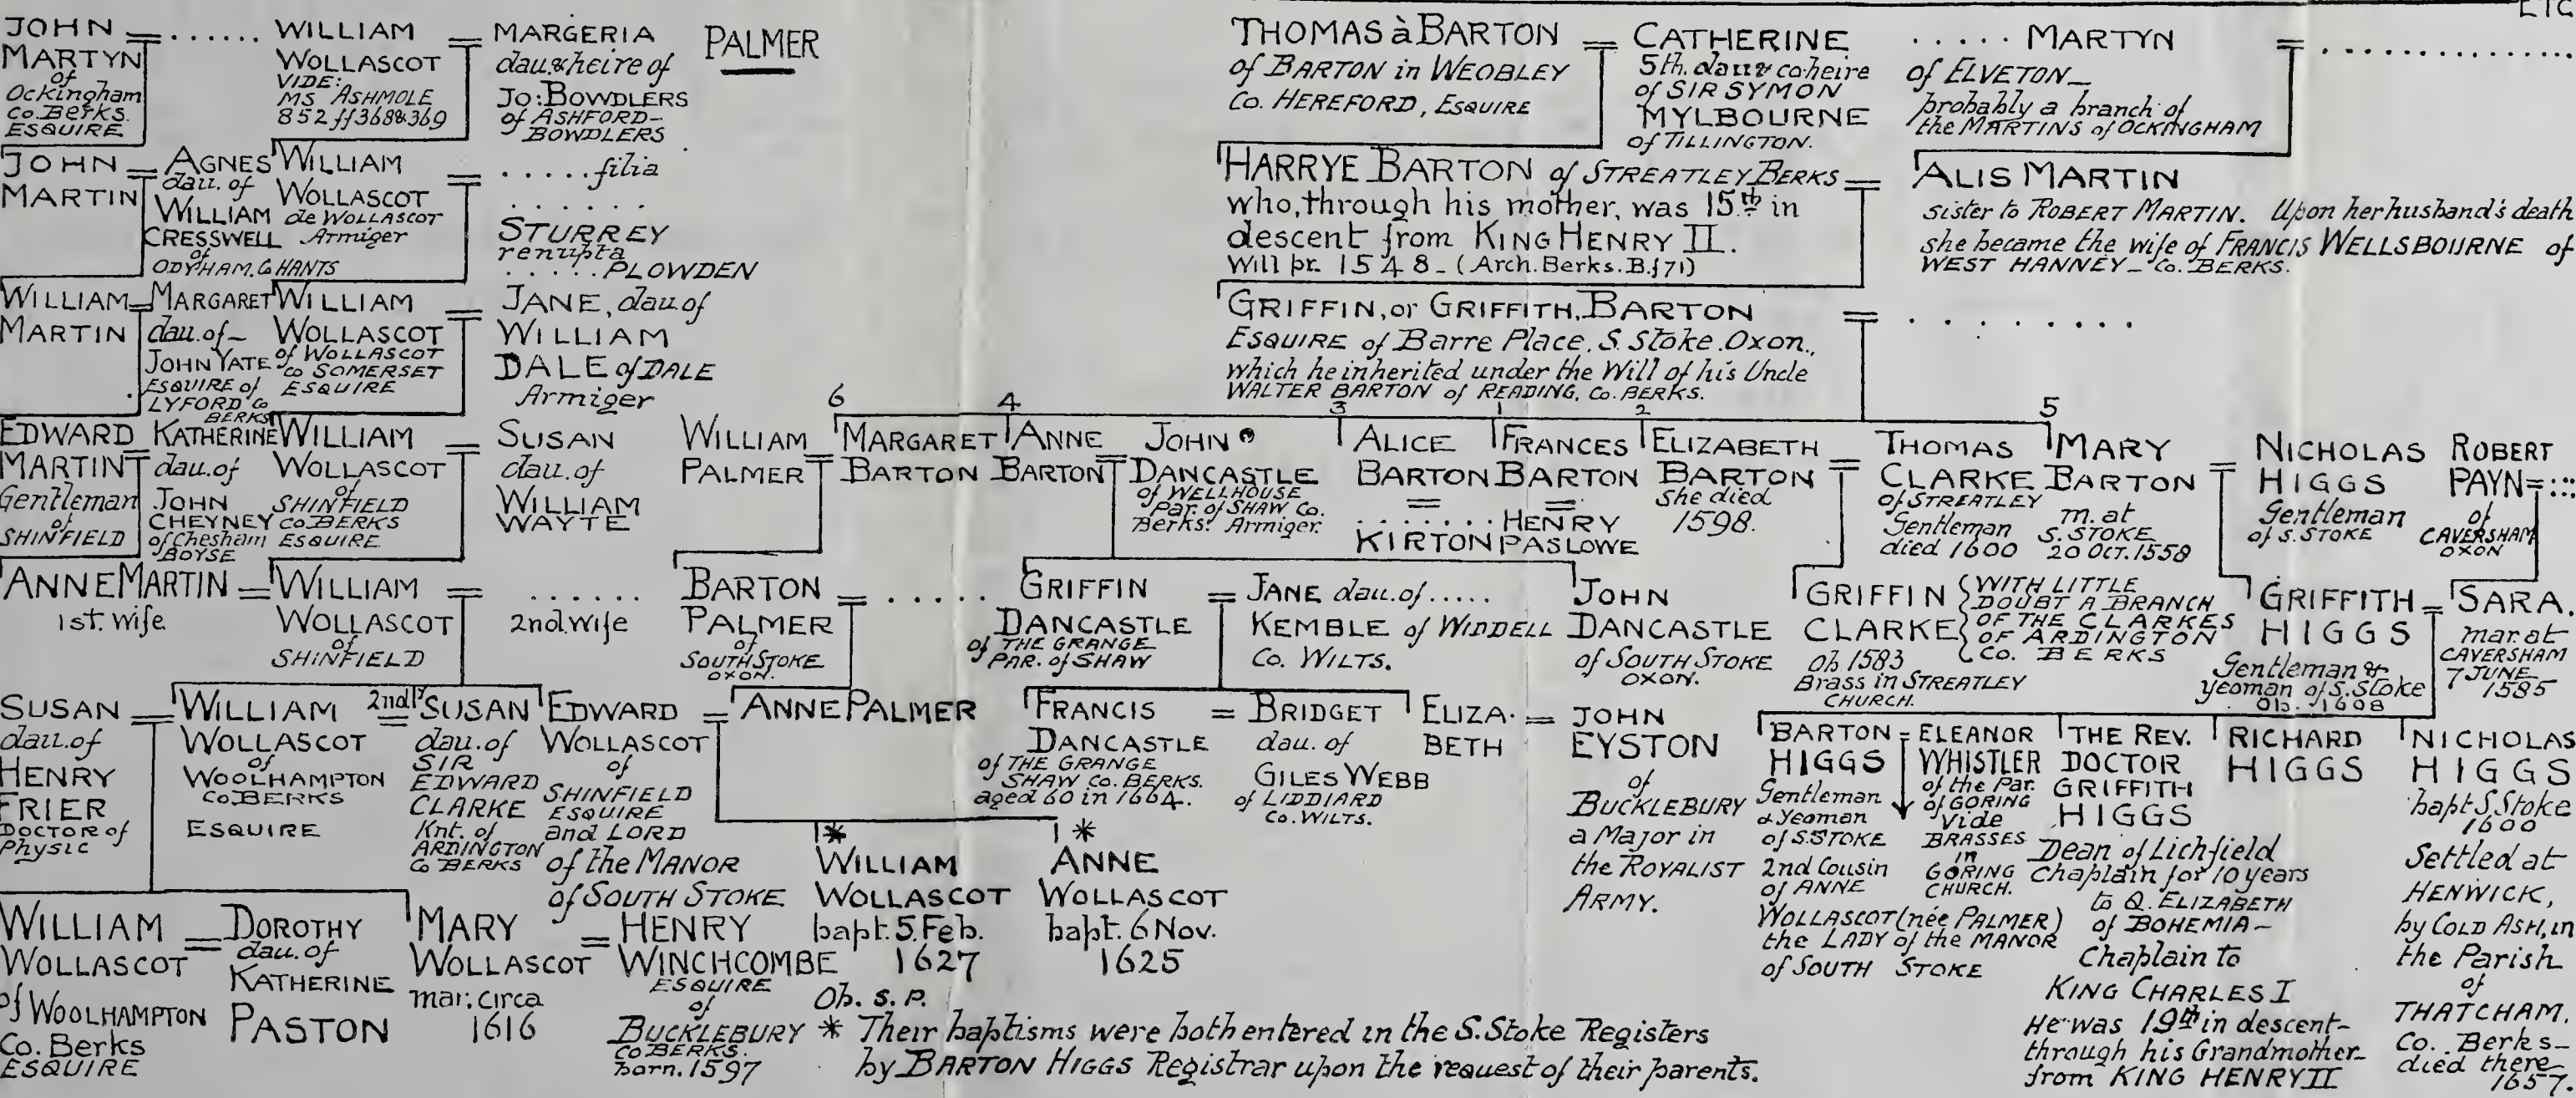 ETC
JOHN
MARTYN
of
Ockingham
Co. Berks.
ESQUIRE
= ......
WILLIAM
WOLLASCOT
VIDE:
MS ASHMOLE
852 ff 368 & 369
=
MARGERIA
dau. & heire of
JO: BOWDLERS
of ASHFORD-
BOWDLERS
PALMER
THOMAS à BARTON
of BARTON in WEOBLEY
Co. HEREFORD, ESQUIRE
=
CATHERINE
5th. dau & coheire
of SIR SYMON
MYLBOURNE
of TILLINGTON.
..... MARTYN
of ELVETON—
probably a branch of
the MARTINS of OCKINGHAM
= ..............
JOHN
MARTIN
=
AGNES
dau. of
WILLIAM
CRESSWELL
of
ODYHAM. G HANTS
WILLIAM
WOLLASCOT
de WOLLASCOT
Armiger
=
..... filia
.......
STURREY
renupta
..... PLOWDEN
HARRYE BARTON of STREATLEY BERKS
who, through his mother, was 15th in
descent from KING HENRY II.
Will pr. 1548 - (Arch. Berks. B. f 71)
=
ALIS MARTIN
sister to ROBERT MARTIN. Upon her husband's death
she became the wife of FRANCIS WELLSBOURNE of
WEST HANNEY — Co. BERKS.
WILLIAM
MARTIN
=
MARGARET
dau. of —
JOHN YATE
ESQUIRE of
LYFORD Co
BERKS
WILLIAM
WOLLASCOT
of WOLLASCOT
co SOMERSET
ESQUIRE
=
JANE, dau. of
WILLIAM
DALE of DALE
Armiger
GRIFFIN, or GRIFFITH, BARTON
ESQUIRE of Barre Place, S. Stoke. Oxon.,
which he inherited under the Will of his Uncle
WALTER BARTON of READING, Co. BERKS.
= .........
6 4 3 1 2 5
EDWARD
MARTIN
Gentleman
of
SHINFIELD
=
KATHERINE
dau. of
JOHN
CHEYNEY
of Chesham
BOYSE
WILLIAM
WOLLASCOT
of
SHINFIELD
co BERKS
ESQUIRE
=
SUSAN
dau. of
WILLIAM
WAYTE
WILLIAM
PALMER
=
MARGARET
BARTON
ANNE
BARTON
=
JOHN
DANCASTLE
of WELLHOUSE
Par. of SHAW Co.
Berks. Armiger.
ALICE
BARTON
=
.......
KIRTON
FRANCES
BARTON
=
HENRY
PASLOWE
ELIZABETH
BARTON
she died
1598.
=
THOMAS
CLARKE
of STREATLEY
Gentleman
died 1600
MARY
BARTON
m. at
S. STOKE
20 OCT. 1558
=
NICHOLAS
HIGGS
Gentleman
of S. STOKE
ROBERT
PAYN = :::
of
CAVERSHAM
OXON
ANNE MARTIN
1st. wife
=
WILLIAM
WOLLASCOT
of
SHINFIELD
= ......
2nd. wife
BARTON
PALMER
of
SOUTH STOKE
OXON.
= .....
GRIFFIN
DANCASTLE
of THE GRANGE
PAR. of SHAW
=
JANE dau. of .....
KEMBLE of WIDDELL
Co. WILTS.
JOHN
DANCASTLE
of SOUTH STOKE
OXON.
GRIFFIN
CLARKE
ob 1583
Brass in STREATLEY
CHURCH.
WITH LITTLE
DOUBT A BRANCH
OF THE CLARKES
OF ARDINGTON
CO. BERKS
GRIFFITH
HIGGS
Gentleman &
yeoman of S. Stoke
Ob. 1608
=
SARA.
mar. at
CAVERSHAM
7 JUNE
1585
SUSAN
dau. of
HENRY
FRIER
DOCTOR of
Physic
=
WILLIAM
WOLLASCOT
of
WOOLHAMPTON
CO. BERKS
ESQUIRE
2ndly
=
SUSAN
dau. of
SIR
EDWARD
CLARKE
Knt. of
ARDINGTON
Co BERKS
EDWARD
WOLLASCOT
of
SHINFIELD
ESQUIRE
and LORD
of the MANOR
of SOUTH STOKE
=
ANNE PALMER
FRANCIS
DANCASTLE
of THE GRANGE
SHAW Co. BERKS.
aged 60 in 1664.
=
BRIDGET
dau. of
GILES WEBB
of LIDDIARD
Co. WILTS.
ELIZA.
BETH
=
JOHN
EYSTON
of
BUCKLEBURY
a Major in
the ROYALIST
ARMY.
BARTON
HIGGS
Gentleman
& Yeoman
of S. STOKE
2nd Cousin
of ANNE
WOLLASCOT (née PALMER)
the LADY of the MANOR
of SOUTH STOKE
=
ELEANOR
WHISTLER
of the Par.
of GORING
Vide
BRASSES
in
GORING
CHURCH.
THE REV.
DOCTOR
GRIFFITH
HIGGS
Dean of Lichfield
Chaplain for 10 years
to Q. ELIZABETH
of BOHEMIA —
Chaplain to
KING CHARLES I
He was 19th in descent-
through his Grandmother-
from KING HENRY II
RICHARD
HIGGS
NICHOLAS
HIGGS
bapt. S. Stoke
1600
Settled at
HENWICK,
by COLD ASH, in
the Parish
of
THATCHAM.
Co. Berks —
died there
1657.
*
WILLIAM
WOLLASCOT
bapt. 5. Feb.
1627
Ob. s. p.
*
ANNE
WOLLASCOT
bapt. 6 Nov.
1625
WILLIAM
WOLLASCOT
of WOOLHAMPTON
Co. Berks
ESQUIRE
=
DOROTHY
dau. of
KATHERINE
PASTON
MARY
WOLLASCOT
mar: circa
1616
=
HENRY
WINCHCOMBE
ESQUIRE
of
BUCKLEBURY
CO BERKS.
born. 1597
* Their baptisms were both entered in the S. Stoke Registers
by BARTON HIGGS Registrar upon the request of their parents.